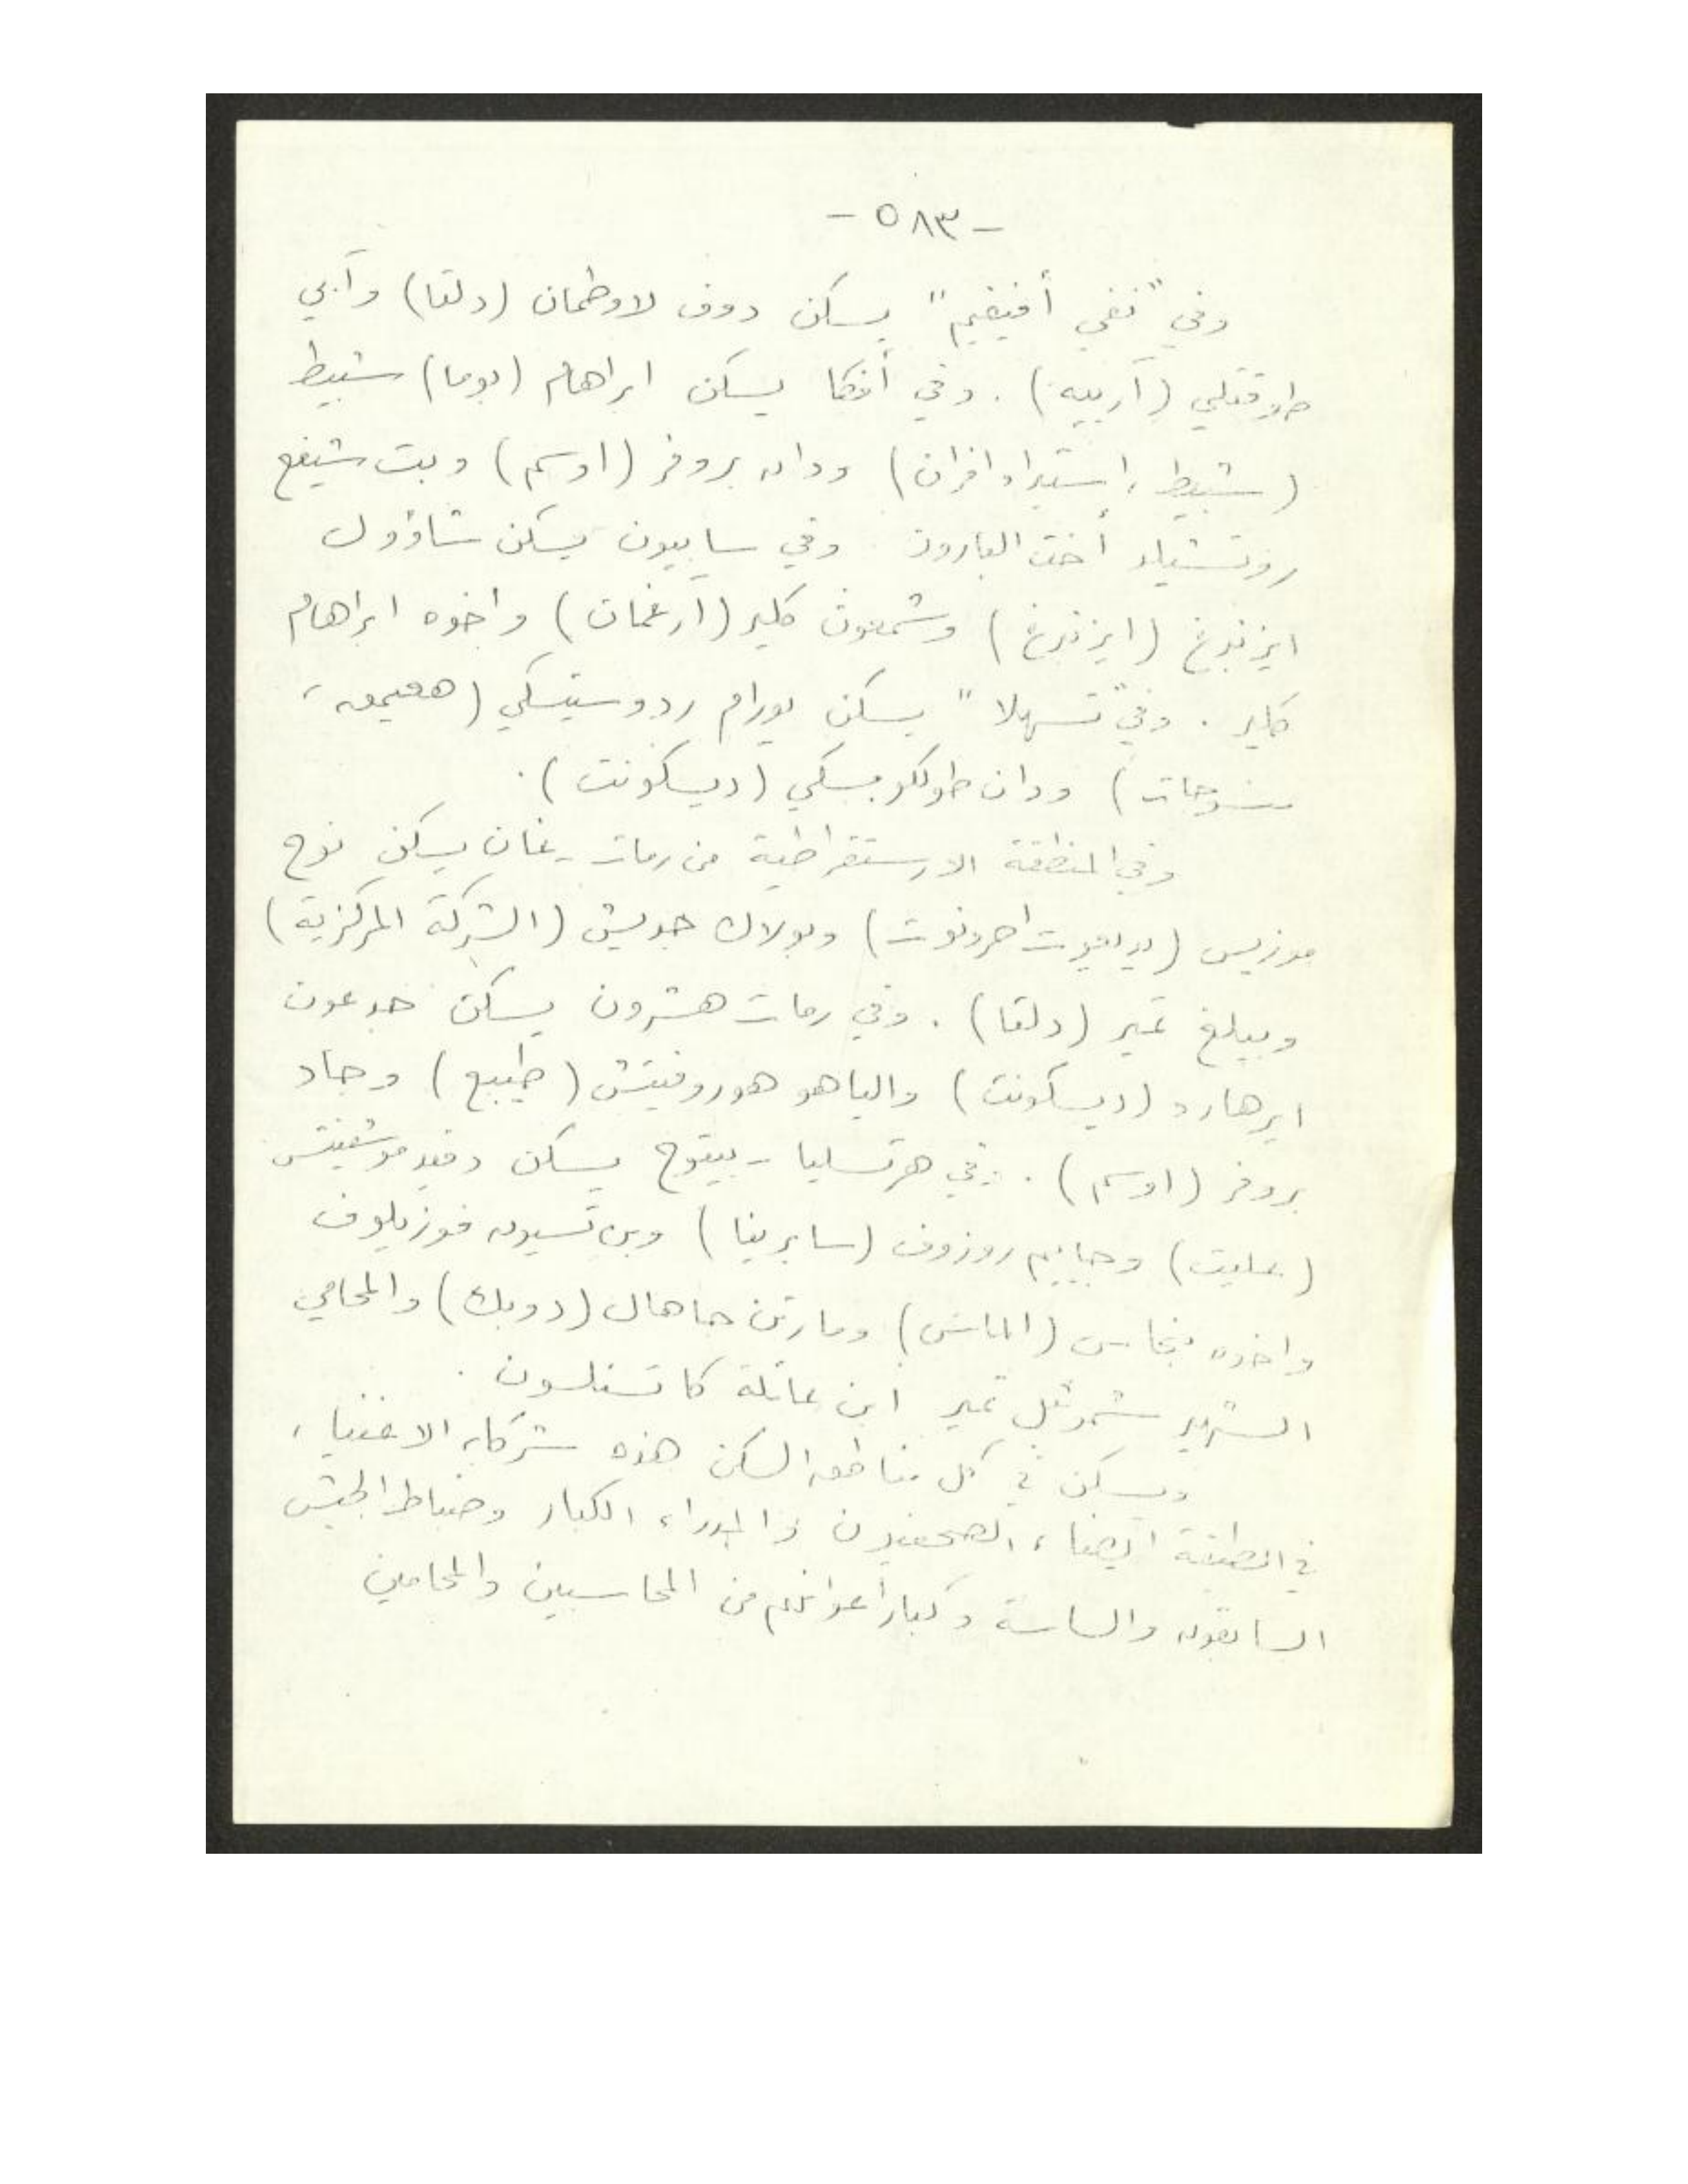 - ٥٨٣ -
وفي "نفي أفيفيم" يسكن دوف لاوطمان (دلتا) وآبي
طوقتلي (آرييه). وفي أفكا يسكن ابراهام (بوما) شبيط
(شبيط، استيراد افران) ودان بروفر (اوسم) وبت شيفع
روتشيلد أخت البارون. وفي سابيون يسكن شاؤول
ايزنبرغ (ايزنبرغ) وشمعون كلير (آرغمان) واخوه ابراهام
كلير. وفي "تسهلا" يسكن يورام ردوستيسكي (هعيمق،
منسوجات) ودان طولكوبسكي (ديسكونت).
وفي المنطقة الارستقراطية من رمات - غان يسكن نوح
موزيس (يديعوت احرونوت) وبولاك جويش (الشركة المركزية)
وبيلغ تمير (دلتا). وفي رمات هشرون يسكن جدعون
ايرهارد (ديسكونت) والياهو هوروفيتش (طييع) وجاد
بروفر (اوسم). وفي هرتسليا - بيتوح يسكن دفيد موشفيتس
(عليت) وحاييم روزوف (سابرينا) وبن تسيون فوزيلوف
واخوه بنحاس (الماس) ومارتن جاهال (دوبك) والمحامي
الشهير شموئيل تمير ابن عائلة كاتسنلسون.
ويسكن في كل مناطق السكن هذه شركاء الاغنياء
في الطبقة ايضا، الصحفيون والمدراء الكبار وضباط الجيش
السابقون والساسة وكبار أعوانهم من المحاسبين والمحامين